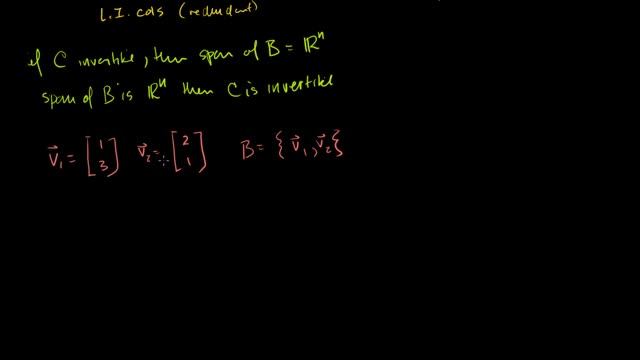 L.I. cols (redundant)
if C invertible, then span of B = ℝⁿ
span of B is ℝⁿ then C is invertible
v⃗₁ = [1 3] v⃗₂ = [2 1] B = { v⃗₁, v⃗₂ }